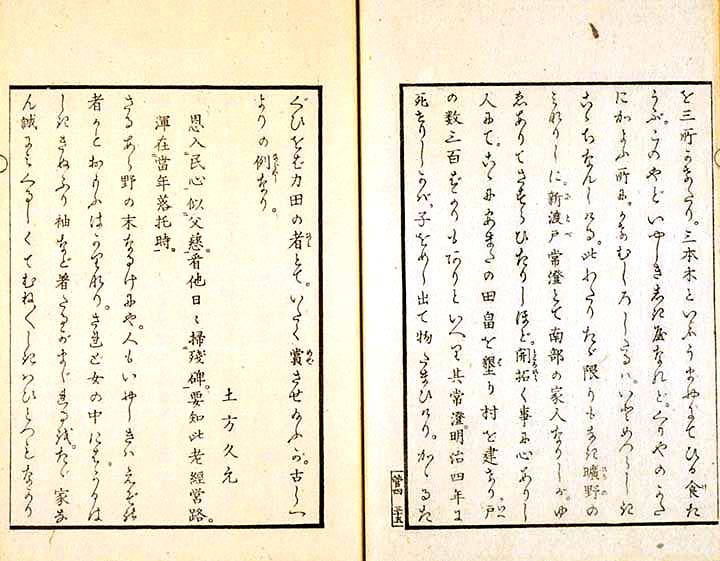 を三所わたれり。三本木といふうまやにてひる食た
うぶ。このやどいやしき屋なれど。くりやのかた
にかよふ所に。むしろしきたるハ。いとめづらしき
こゝちなんしける。此わたりたゞ限りもなき曠野の
みなりしに。新渡戸常澄とて南部の家人なりしが。ゆ
ゑありてさすらひたりしほど。開拓く事に心ありし
人にて。こゝにあまたの田畠を墾り村を建たり。戸
の数三百ばかりもありといへり。其常澄。明治四年に
死たりしかバ。子をめし出て物たまひけり。かゝるた
管四 三十五
ぐひをば力田の者とて。いたく賞させたまふが。古しへ
よりの例なり。
土方久元
恩入民心似父慈。看他日々掃殘碑。要知此老經營路。
渾在當年落托時。
さるあら野の末なるけにや。人もいやしきハ
者かとおもふばかりなり。されど女の中に
ふり袖など着たるがまじれる。たゞ家な
ん誠にくるしくてむね〳〵しきはひとつもなかり